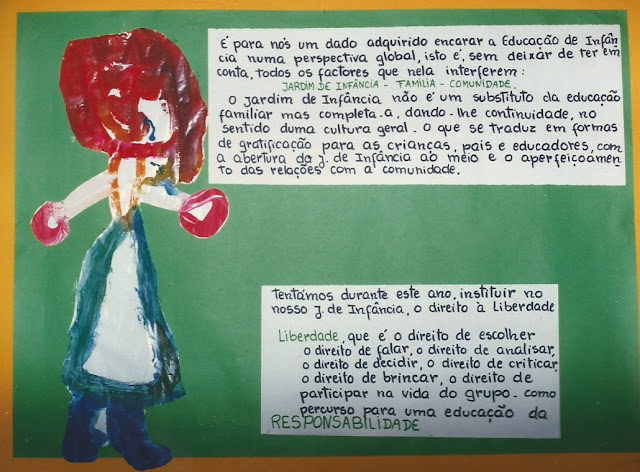 É para nós um dado adquirido encarar a Educação de Infân
cia numa perspectiva global, isto é, sem deixar de ter em
conta, todos os factores que nela interferem:
JARDIM DE INFÂNCIA - FAMÍLIA - COMUNIDADE.
O jardim de Infância não é um substituto da educação
familiar mas completa-a, dando-lhe continuidade, no
sentido duma cultura geral. O que se traduz em formas
de gratificação para as crianças, pais e educadores, com
a abertura do J. de Infância ao meio e o aperfeiçoamen
to das relações com a comunidade.
Tentámos durante este ano, instituir no
nosso J. de Infância, o direito à Liberdade
Liberdade, que é o direito de escolher
o direito de falar, o direito de analisar,
o direito de decidir, o direito de criticar,
o direito de brincar, o direito de
participar na vida do grupo - como
percurso para uma educação da
RESPONSABILIDADE